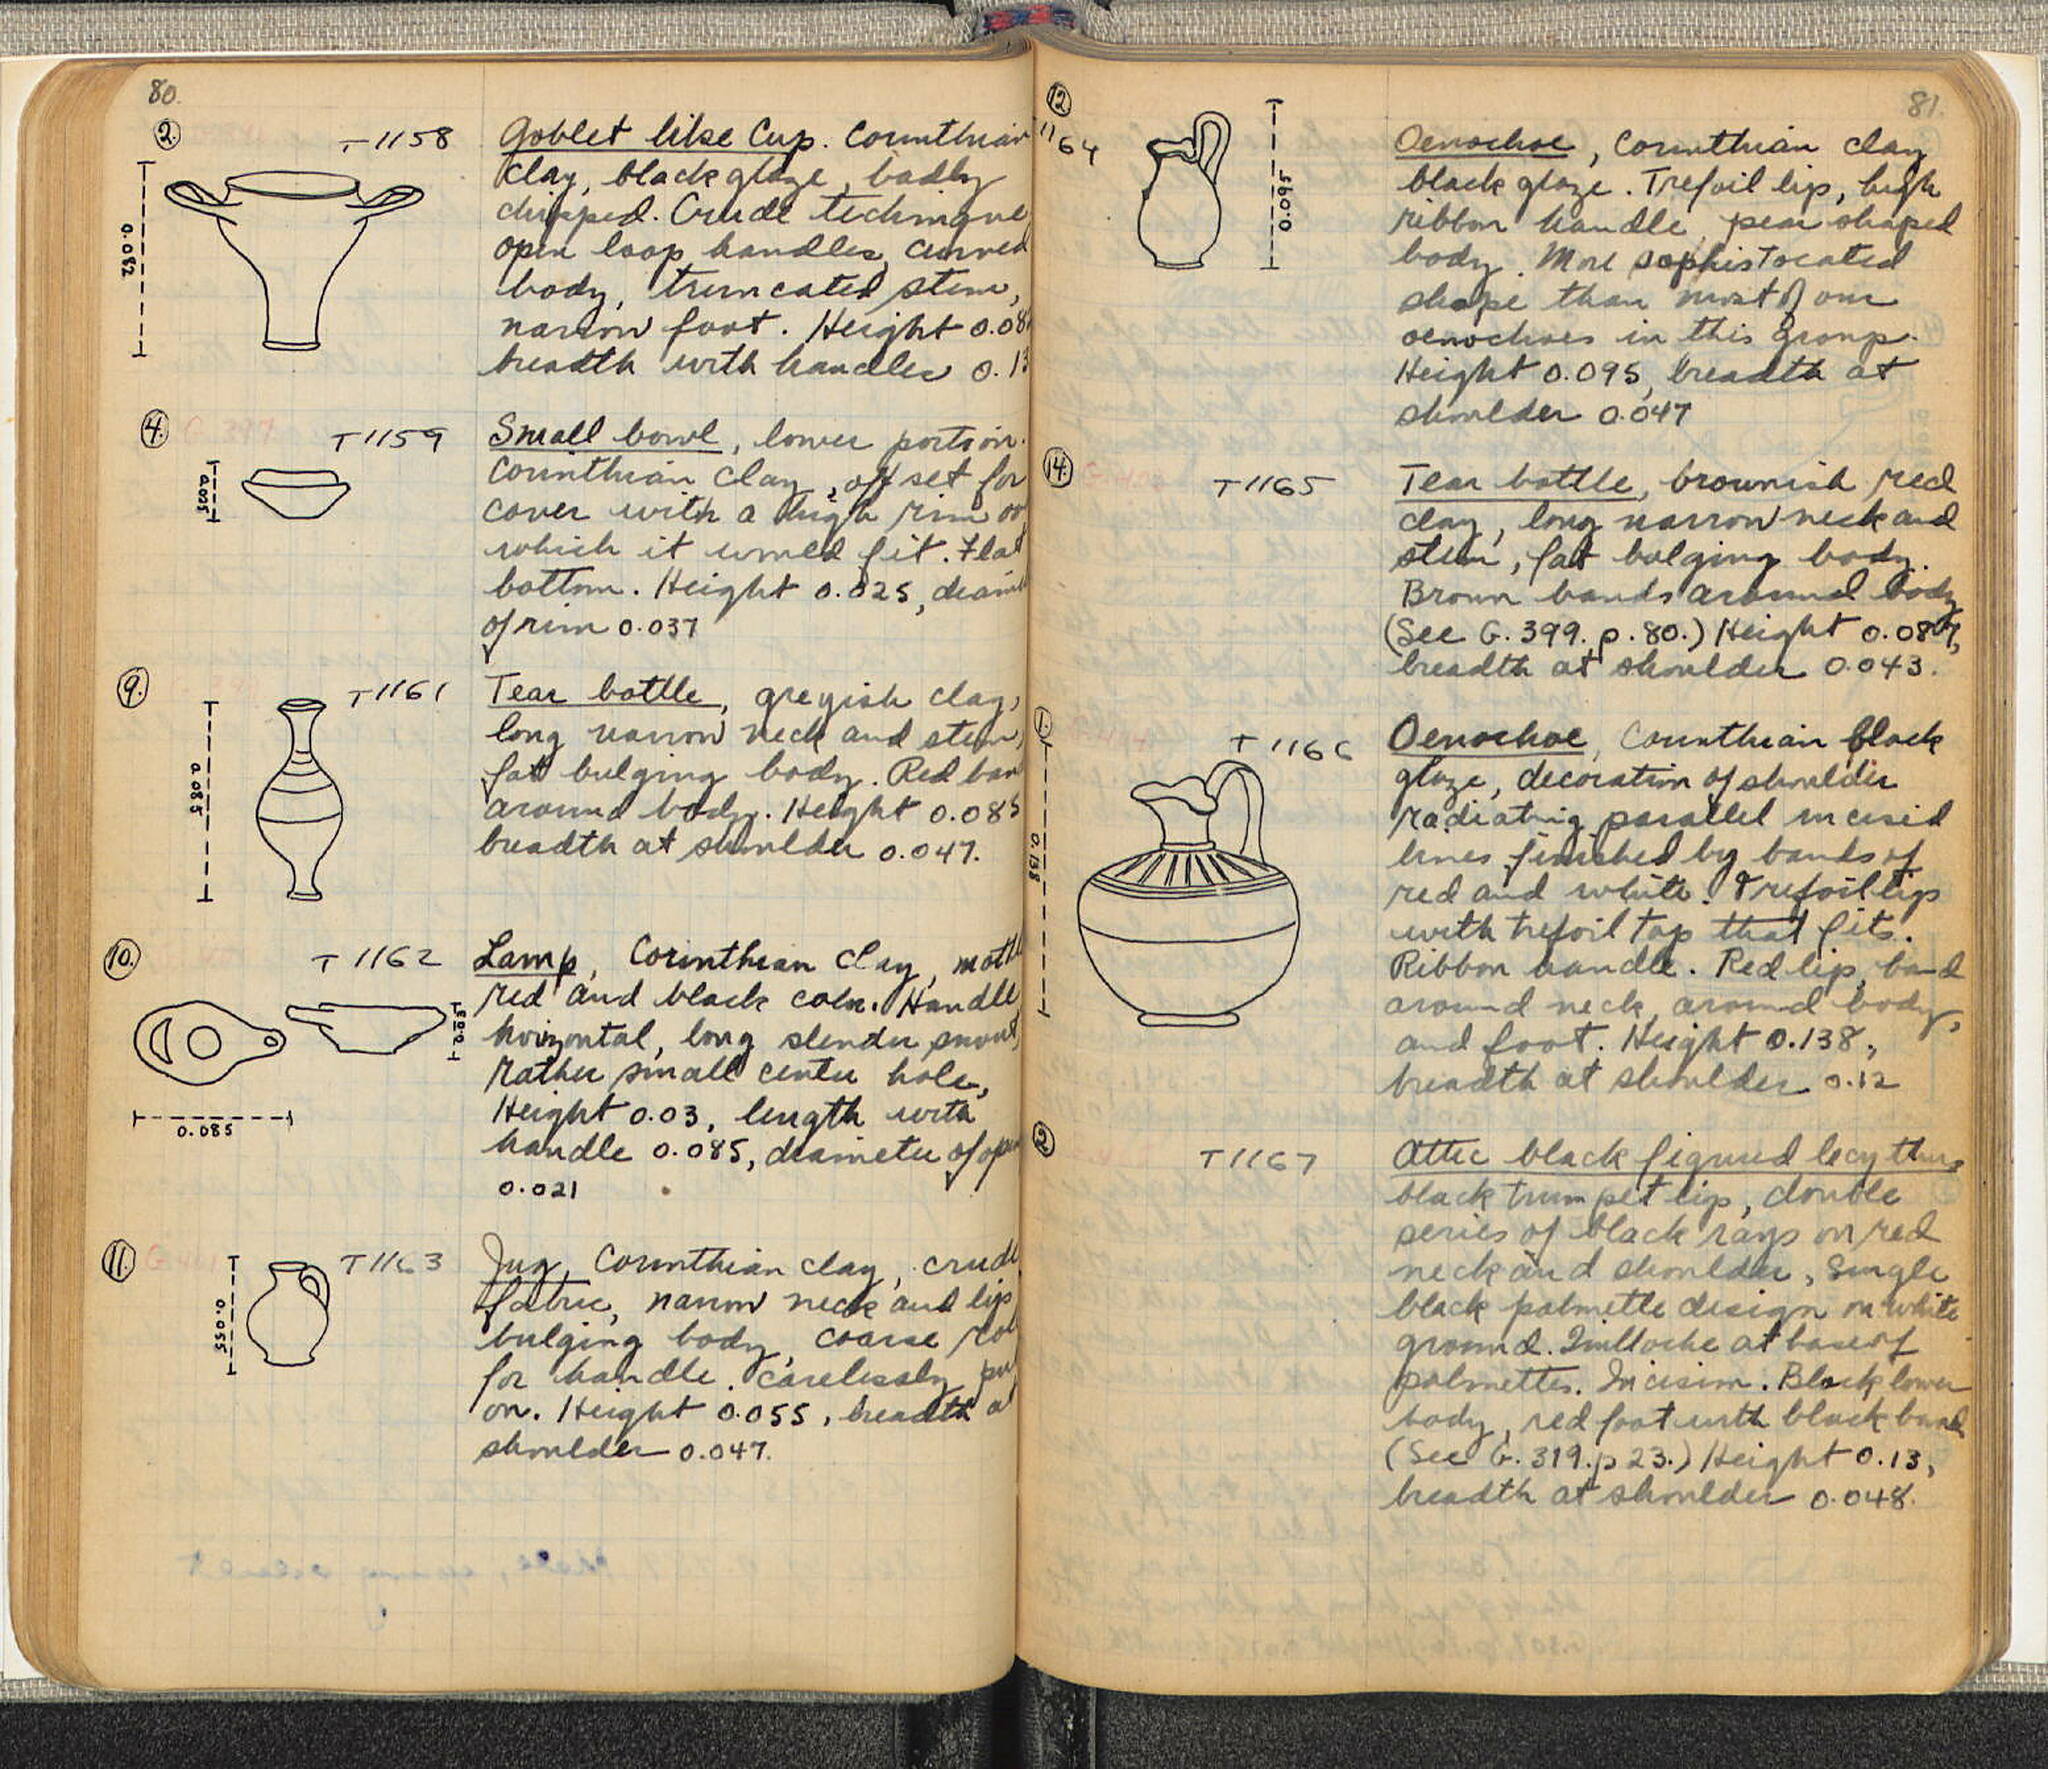 80.
2.
T1158
Goblet like Cup. Corinthian
clay, black glaze, badly
chipped. Crude technique
open loop handles, curved
body, truncated stem,
narrow foot. Height 0.08
breadth with handles 0.13
0.082
4.
G 397
T1159
Small bowl, lower portion.
Corinthian clay, off set for
cover with a high rim
which it would fit. Flat
bottom. Height 0.025,
of rim 0.037
0.025
9.
T1161
Tear bottle, greyish clay,
long narrow neck and stem,
fat bulging body. Red
around body. Height 0.085
breadth at shoulder 0.047.
0.085
10.
T1162
Lamp, Corinthian clay,
red and black color. Handle
horizontal, long slender snout,
rather small center hole,
Height 0.03, length with
handle 0.085, diameter of
0.021
0.03
0.085
11.
G 401
T1163
Jug, Corinthian clay, crude
fabric, narrow neck and lip
bulging body, coarse
for handle. carelessly
on. Height 0.055, breadth at
shoulder 0.047.
0.055
81.
12
1164
Oenochoe, Corinthian clay
black glaze. Trefoil lip, high
ribbon handle, pear shaped
body. More sophistocated
shape than most of our
oenochoes in this group.
Height 0.095, breadth at
shoulder 0.047
0.095
14.
T1165
Tear bottle, brownish red
clay, long narrow neck and
stem, fat bulging body.
Brown bands around body
(See G. 399. p. 80.) Height 0.087,
breadth at shoulder 0.043.
1.
T 1166
Oenochoe, Corinthian black
glaze, decoration of shoulder
radiating parallel incised
lines finished by bands of
red and white. Trefoil lip
with trefoil top that fits.
Ribbon handle. Red lip, band
around neck, around body,
and foot. Height 0.138,
breadth at shoulder 0.12
0.138
2.
T1167
Attic black figured lecythus,
black trumpet lip, double
series of black rays on red
neck and shoulder, Single
black palmette design on white
ground. Guilloche at base of
palmettes. Incision. Black lower
body, red foot with black band
(See G. 319. p 23.) Height 0.13,
breadth at shoulder 0.048.